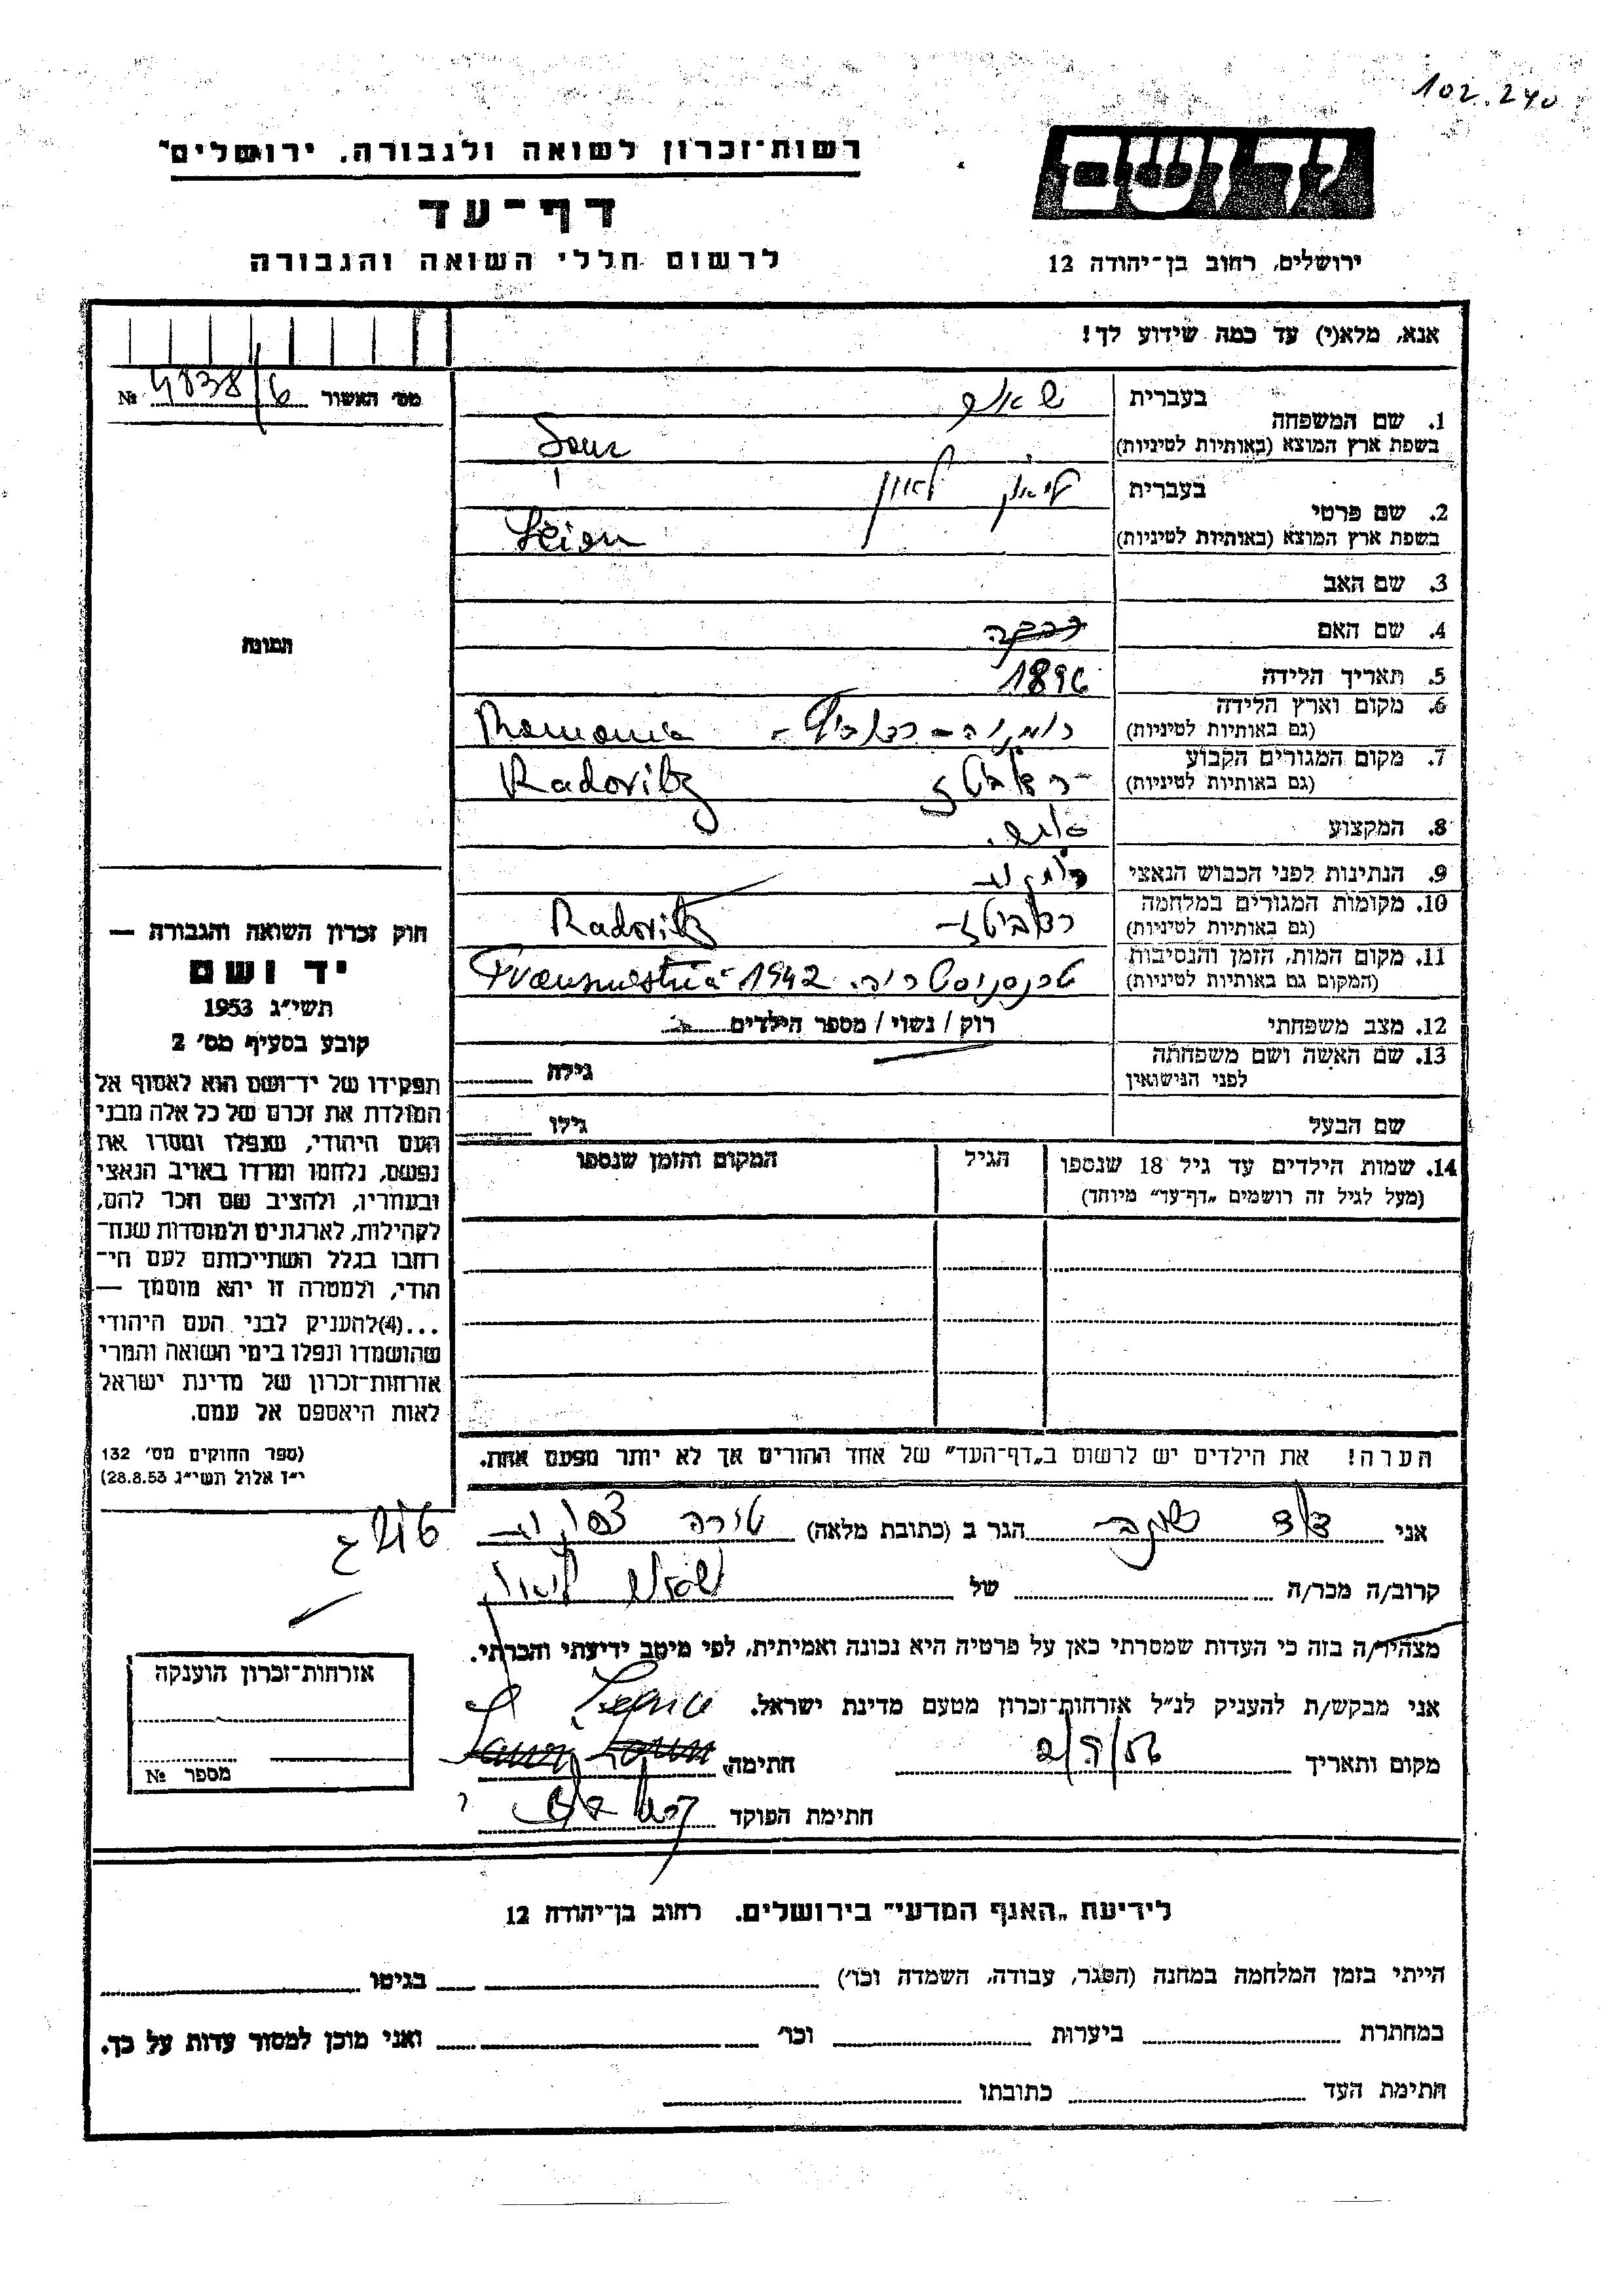 102.240
רשות־זכרון לשואה ולגבורה. ירושלים"
דף־עד
לרשום חללי השואה והגבורה
ירושלים, רחוב בן־יהודה 12
אנא, מלא(י) עד כמה שידוע לך!
מס' האשור № 4838/6
1. שם המשפחה
בעברית
בשפת ארץ המוצא (באותיות לטיניות)
2. שם פרטי
בעברית ליאון
בשפת ארץ המוצא (באותיות לטיניות)
3. שם האב
4. שם האם רבקה
5. תאריך הלידה 1896
6. מקום וארץ הלידה
(גם באותיות לטיניות)
רומניה - Romania
7. מקום המגורים הקבוע
(גם באותיות לטיניות)
Radovitz
8. המקצוע
9. הנתינות לפני הכבוש הנאצי
10. מקומות המגורים במלחמה
(גם באותיות לטיניות)
Radovitz
11. מקום המות, הזמן והנסיבות
(המקום גם באותיות לטיניות)
טרנסניסטריה. 1942
12. מצב משפחתי רוק / נשוי / מספר הילדים
13. שם האשה ושם משפחתה
לפני הנישואין
גילה
שם הבעל גילו
14. שמות הילדים עד גיל 18 שנספו
(מעל לגיל זה רושמים „דף־עד" מיוחד)
הגיל
המקום והזמן שנספו
הערה! את הילדים יש לרשום ב„דף־העד" של אחד ההורים אך לא יותר מפעם אחת.
תמונה
חוק זכרון השואה והגבורה —
יד ושם
תשי"ג 1953
קובע בסעיף מס' 2
תפקידו של יד־ושם הוא לאסוף אל
המולדת את זכרם של כל אלה מבני
העם היהודי, שנפלו ומסרו את
נפשם, נלחמו ומרדו באויב הנאצי
ובעוזריו, ולהציב שם וזכר להם,
לקהילות, לארגונים ולמוסדות שנח־
רבו בגלל השתייכותם לעם הי־
הודי, ולמטרה זו יהא מוסמך —
...(4)להעניק לבני העם היהודי
שהושמדו ונפלו בימי השואה והמרי
אזרחות־זכרון של מדינת ישראל
לאות היאספם אל עמם.
(ספר החוקים מס' 132
י"ז אלול תשי"ג 28.8.53)
אני הגר ב (כתובת מלאה) טירה
קרוב/ה מכר/ה של
מצהיר/ה בזה כי העדות שמסרתי כאן על פרטיה היא נכונה ואמיתית, לפי מיטב ידיעתי והכרתי.
אני מבקש/ת להעניק לנ"ל אזרחות־זכרון מטעם מדינת ישראל.
מקום ותאריך חתימה
חתימת הפוקד
אזרחות־זכרון הוענקה
מספר №
לידיעת „האגף המדעי" בירושלים. רחוב בן־יהודה 12
הייתי בזמן המלחמה במחנה (הסגר, עבודה, השמדה וכו') בגיטו
במחתרת ביערות וכו' ואני מוכן למסור עדות על כך.
חתימת העד כתובתו